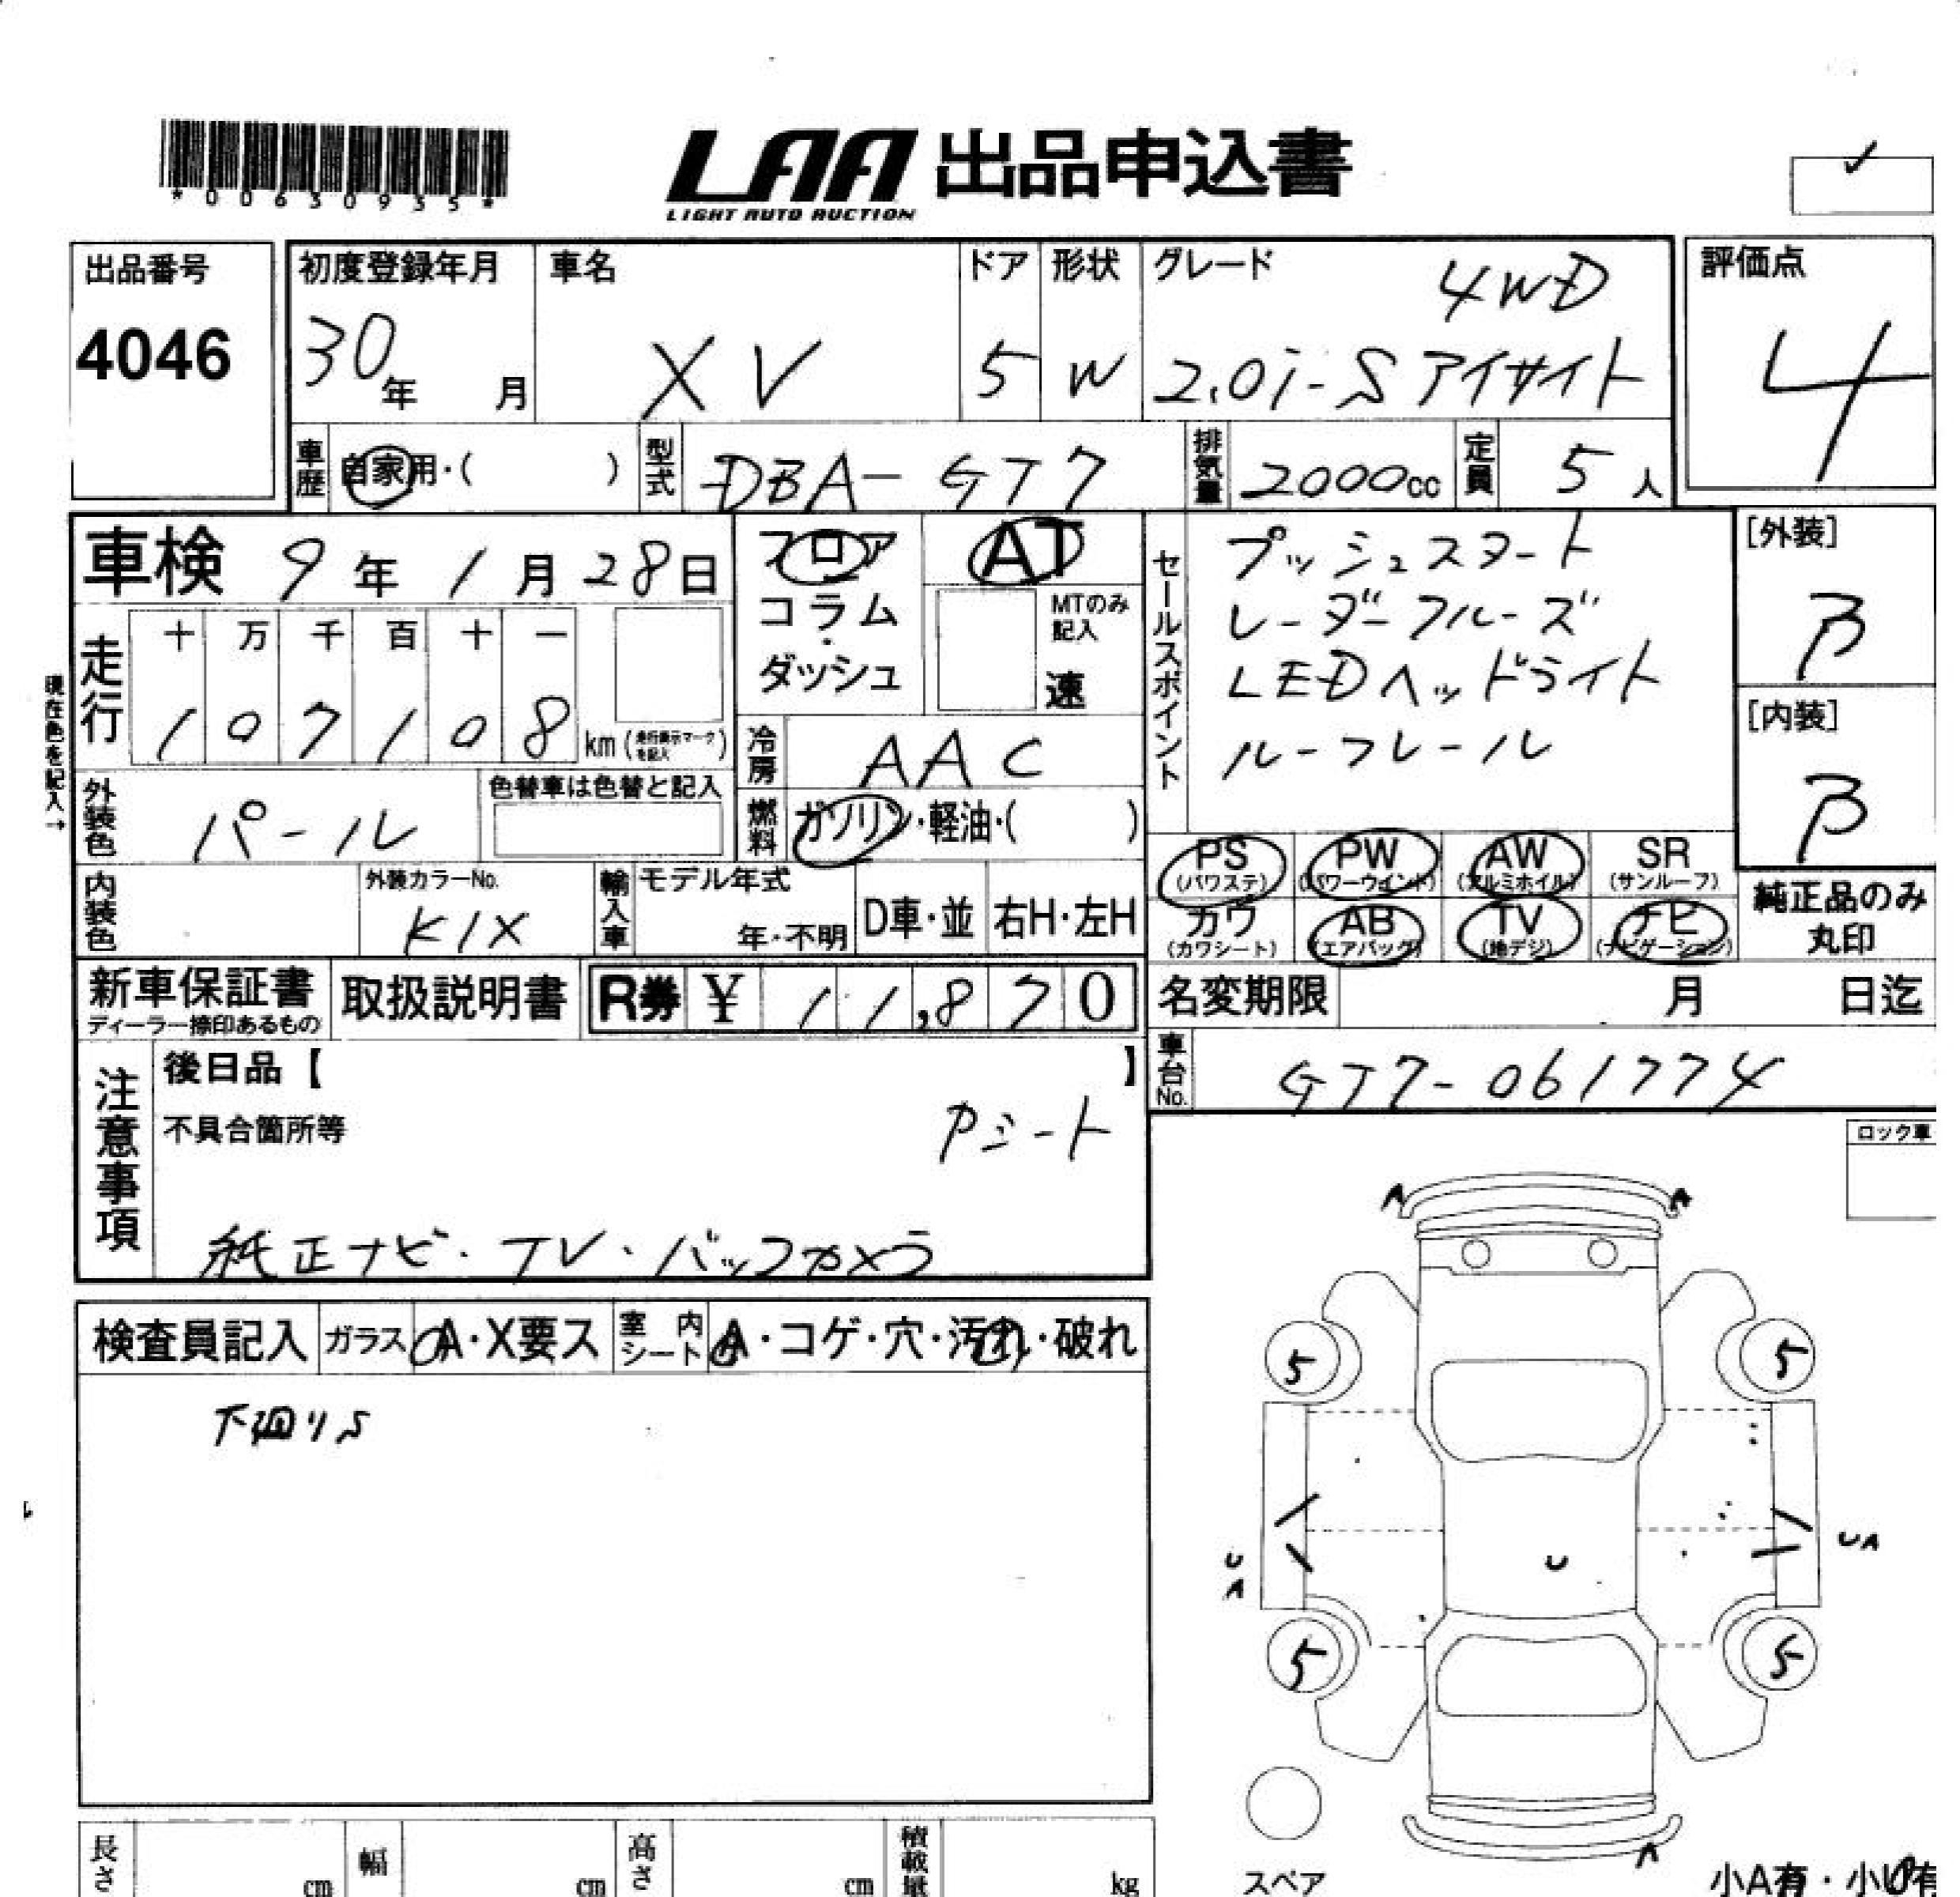 *00630935*
LAA 出品申込書
LIGHT AUTO AUCTION
✓
出品番号
4046
初度登録年月
30年 月
車名
XV
ドア
5
形状
W
グレード
4WD
2.0i-S アイサイト
評価点
4
車歴
自家用・( )
型式
DBA-GT7
排気量
2000cc
定員
5人
車検 9年1月28日
フロア
コラム
・
ダッシュ
AT
MTのみ
記入
速
セールスポイント
プッシュスタート
レーダークルーズ
LEDヘッドライト
ルーフレール
[外装]
B
[内装]
B
現在色を記入→
走行
十 万 千 百 十 一
1 0 7 1 0 8 km (走行表示マークを記入)
冷房
AAC
外装色
パール
色替車は色替と記入
燃料
ガソリン・軽油・( )
PS
(パワステ)
PW
(パワーウインド)
AW
(アルミホイル)
SR
(サンルーフ)
カワ
(カワシート)
AB
(エアバッグ)
TV
(地デジ)
ナビ
(ナビゲーション)
純正品のみ
丸印
内装色
外装カラーNo.
K1X
輸入車
モデル年式
年・不明
D車・並
右H・左H
新車保証書
ディーラー捺印あるもの
取扱説明書
R券 ¥ 11,870
名変期限 月 日迄
車台No.
GT7-061774
注意事項
後日品【 】
不具合箇所等
Pシート
純正ナビ・TV・バックカメラ
ロック車
検査員記入
ガラス
A・X要ス
室内シート
A・コゲ・穴・汚れ・破れ
下回りS
A A
5 5
U
A
U
UA
5 5
A
スペア
小A有・小U有
長さ cm
幅 cm
高さ cm
積載量 kg